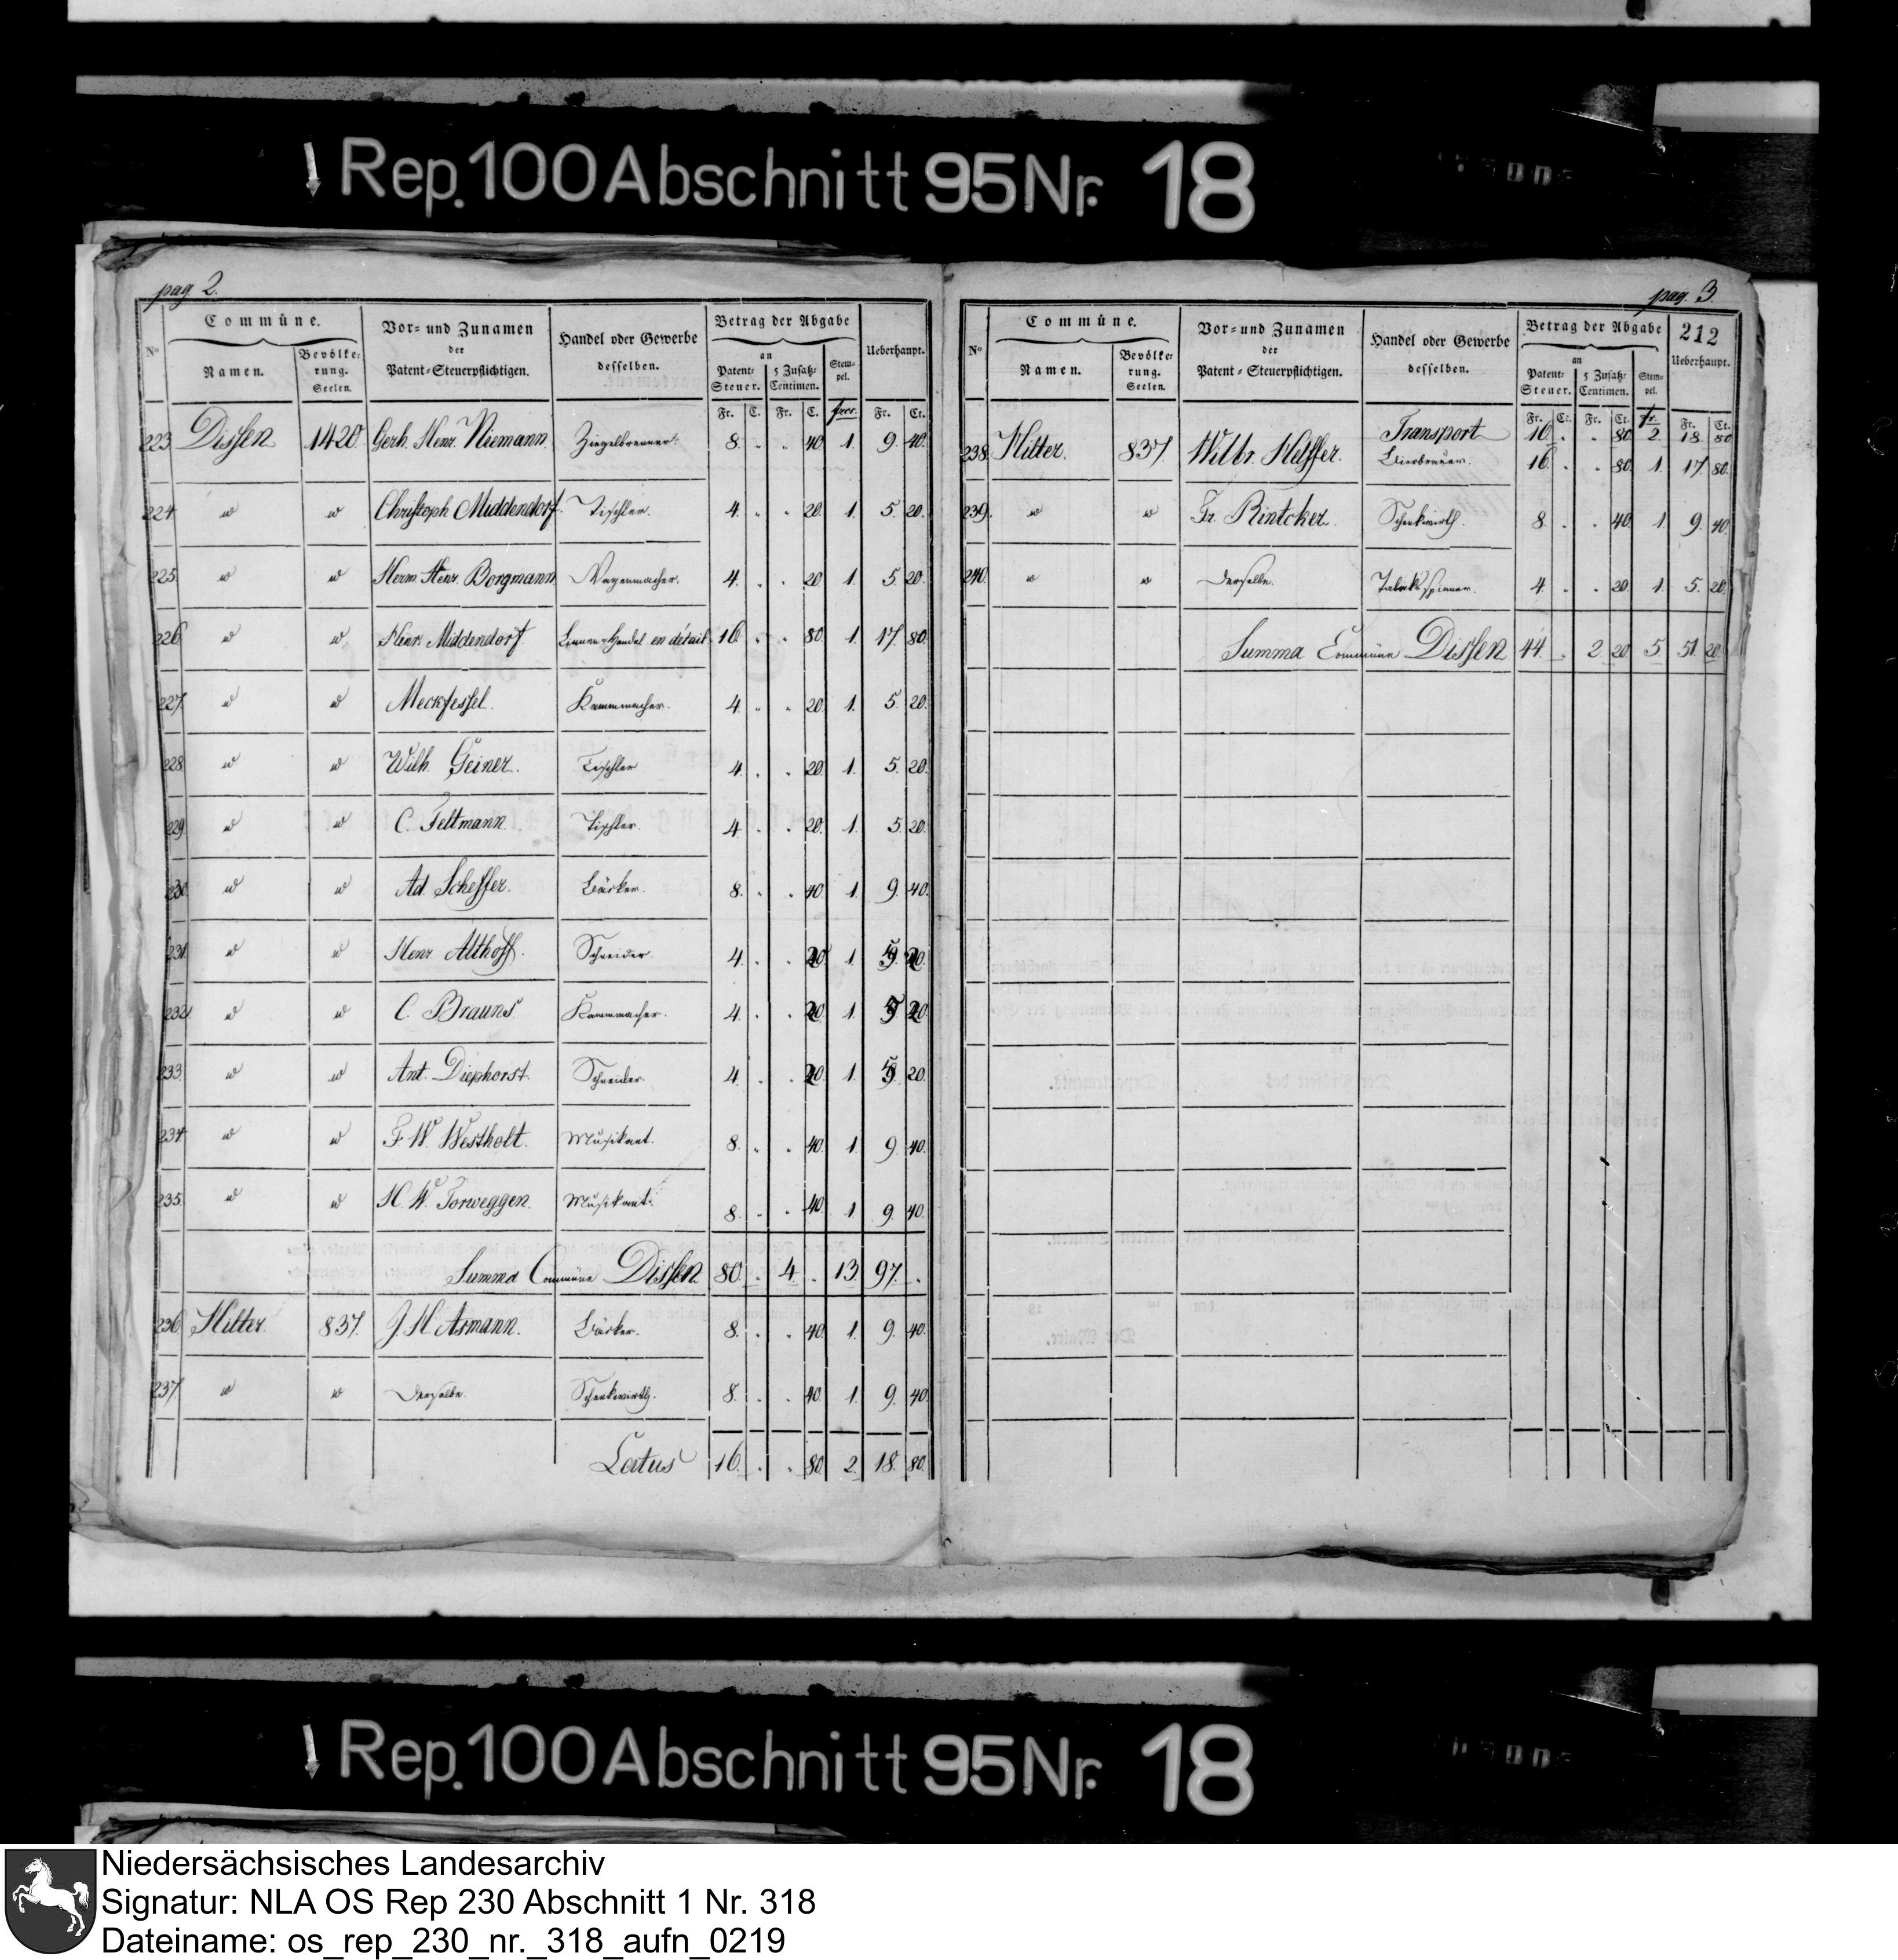 Rep. 100 Abschnitt 95 Nr. 18
pag 2.
Commüne.
Vor- und Zunamen
der
Patent-Steuerpflichtigen.
Handel oder Gewerbe
desselben.
Betrag der Abgabe
an
Nº
Namen.
Bevölke-
rung.
Seelen.
Patent-
Steuer.
5 Zusatz-
Centimen.
Stem-
pel.
Ueberhaupt.
Fr. C. Fr. C. Fr. Ct.
223 Dissen 1420. Gerh. Henr. Niemann Ziegelbrenner. 8. " " 40 1. 9. 40.
224 " " Christoph Middendorf. Tischler. 4. " " 20. 1. 5. 20.
225. " " Herm. Henr. Borgmann Wagenmacher. 4. " " 20 1. 5 20.
226 " " Henr. Middendorf Linnen-Handel en détail 16. " " 80. 1. 17. 80.
227 " " Meckfessel. Kammmacher. 4. " " 20. 1. 5. 20.
228 " " Wilh. Geiner. Tischler 4. " " 20. 1. 5. 20.
229. " " C. Feltmann. Tischler. 4 " " 20. 1. 5. 20.
230. " " Ad. Scheffer. Bäcker. 8. " " 40 1. 9. 40.
231. " " Henr Althoff. Schneider. 4. " " 20 1. 5. 20.
232. " " C. Brauns Kammmacher. 4. " " 20 1. 5. 20
233. " " Ant. Diephorst. Schneider. 4. " " 20. 1. 5. 20.
234 " " F. W. Westholt. Musikant. 8. " " 40. 1. 9. 40.
235. " " H. W. Torweggen. Musikant. 8. " " 40. 1 9. 40.
Summa Commüne Dissen 80. . 4. . 13. 97. .
236 Hilter. 837. J. H. Asmann. Bäcker. 8. " " 40. 1. 9. 40.
237. " " Derselbe. Schenkwirth. 8. " " 40. 1. 9. 40.
Latus 16. " " 80. 2. 18. 80.
pag. 3.
Commüne.
Vor- und Zunamen
der
Patent-Steuerpflichtigen.
Handel oder Gewerbe
desselben.
Betrag der Abgabe
an
212
Nº
Namen.
Bevölke-
rung.
Seelen.
Patent-
Steuer.
5 Zusatz-
Centimen.
Stem-
pel.
Ueberhaupt.
Fr. Ct. Fr. Ct. fr. Fr. Ct.
Transport 16. " " 80. 2. 18. 80
238. Hilter. 837. Bierbrauer. 16. " " 80. 1. 17. 80.
239. " " Fr. Rintcker. Schenkwirth. 8. " " 40. 1 9. 40.
240. " " Derselbe. Tabakspinner. 4. " " 20. 1. 5. 20.
Summa Commüne Dissen 44. . 2 20 5 51. 20.
Rep. 100 Abschnitt 95 Nr. 18
Niedersächsisches Landesarchiv
Signatur: NLA OS Rep 230 Abschnitt 1 Nr. 318
Dateiname: os_rep_230_nr._318_aufn_0219